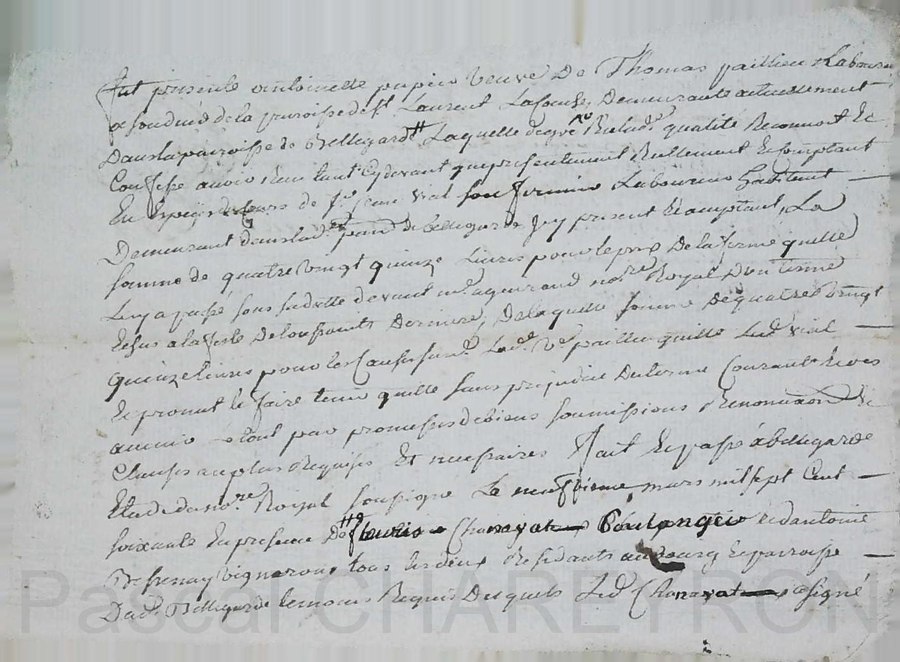 fut presente anthoinette papin veuve De Thomas paillieu Laboureur
a foudues de la paroisse de St. Laurent Lafouche, Demeurante actuellement
Dans la paroisse de Bellegarde Laquelle de gré ... qualité Reconnoit Et
Confesse avoir Reçu tant Cydevant que presentement Reellement Et comptant
En Espeçes de Cours de Sr. jean Vial son fermier Laboureur habitant
Demeurant dans lad. parr. de bellegarde Icy present Et acceptant, La
somme de quatre vingt quinze Livres pour le prix De la ferme quelle
Luy a passé sous sa datte devant me. aguiraud nore. Royal D'un terme
Echus a la feste De tous saints Derniere, De laquelle somme De quatre vingt
quinze livres pour les Causes susd. Lad. ve. paillieu quitte Led. Vial
Et promet le faire tenir quitte sans prejudice Du terme Courant Et ceux
avenir — tout par promesses de biens soumissions Renonciaon. Et
Clauses au plus Requises Et necessaires fait Et passé a bellegarde
Etude du nore. Royal soussigné Le neufvieme mars mil sept Cent
soixante En presence De fleury Chanavat Boulanger et d'antoine
Defrenay vigneron tous les deux Residants au bourg Et parroisse
Dud. Bellegarde temoins Requis Desquels Led. Chanavat a signé
Pascal CHAREYRON